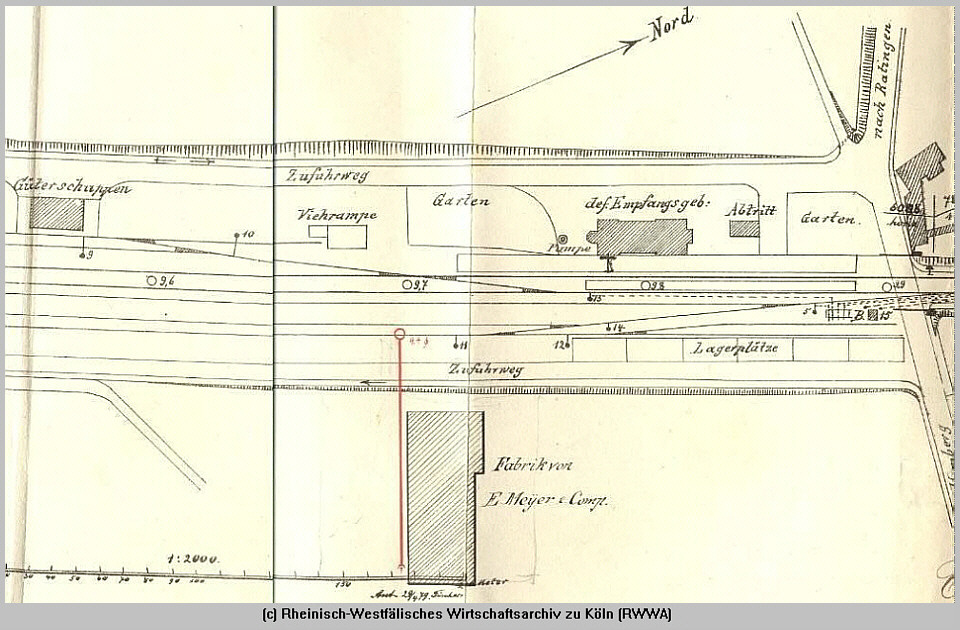 Nord
nach Ratingen
Zufuhrweg
Güterschuppen
Viehrampe
Garten
def. Empfangsgeb:
Abtritt
Garten.
Pumpe
10
9
9,6
9,7
9,8
9,9
13
5
B
15
14
11
12
Lagerplätze
Zufuhrweg
Fabrik von
E. Meyer & Comp.
1:2000.
30 40 50 60 70 80 90 100
150
Meter
(c) Rheinisch-Westfälisches Wirtschaftsarchiv zu Köln (RWWA)